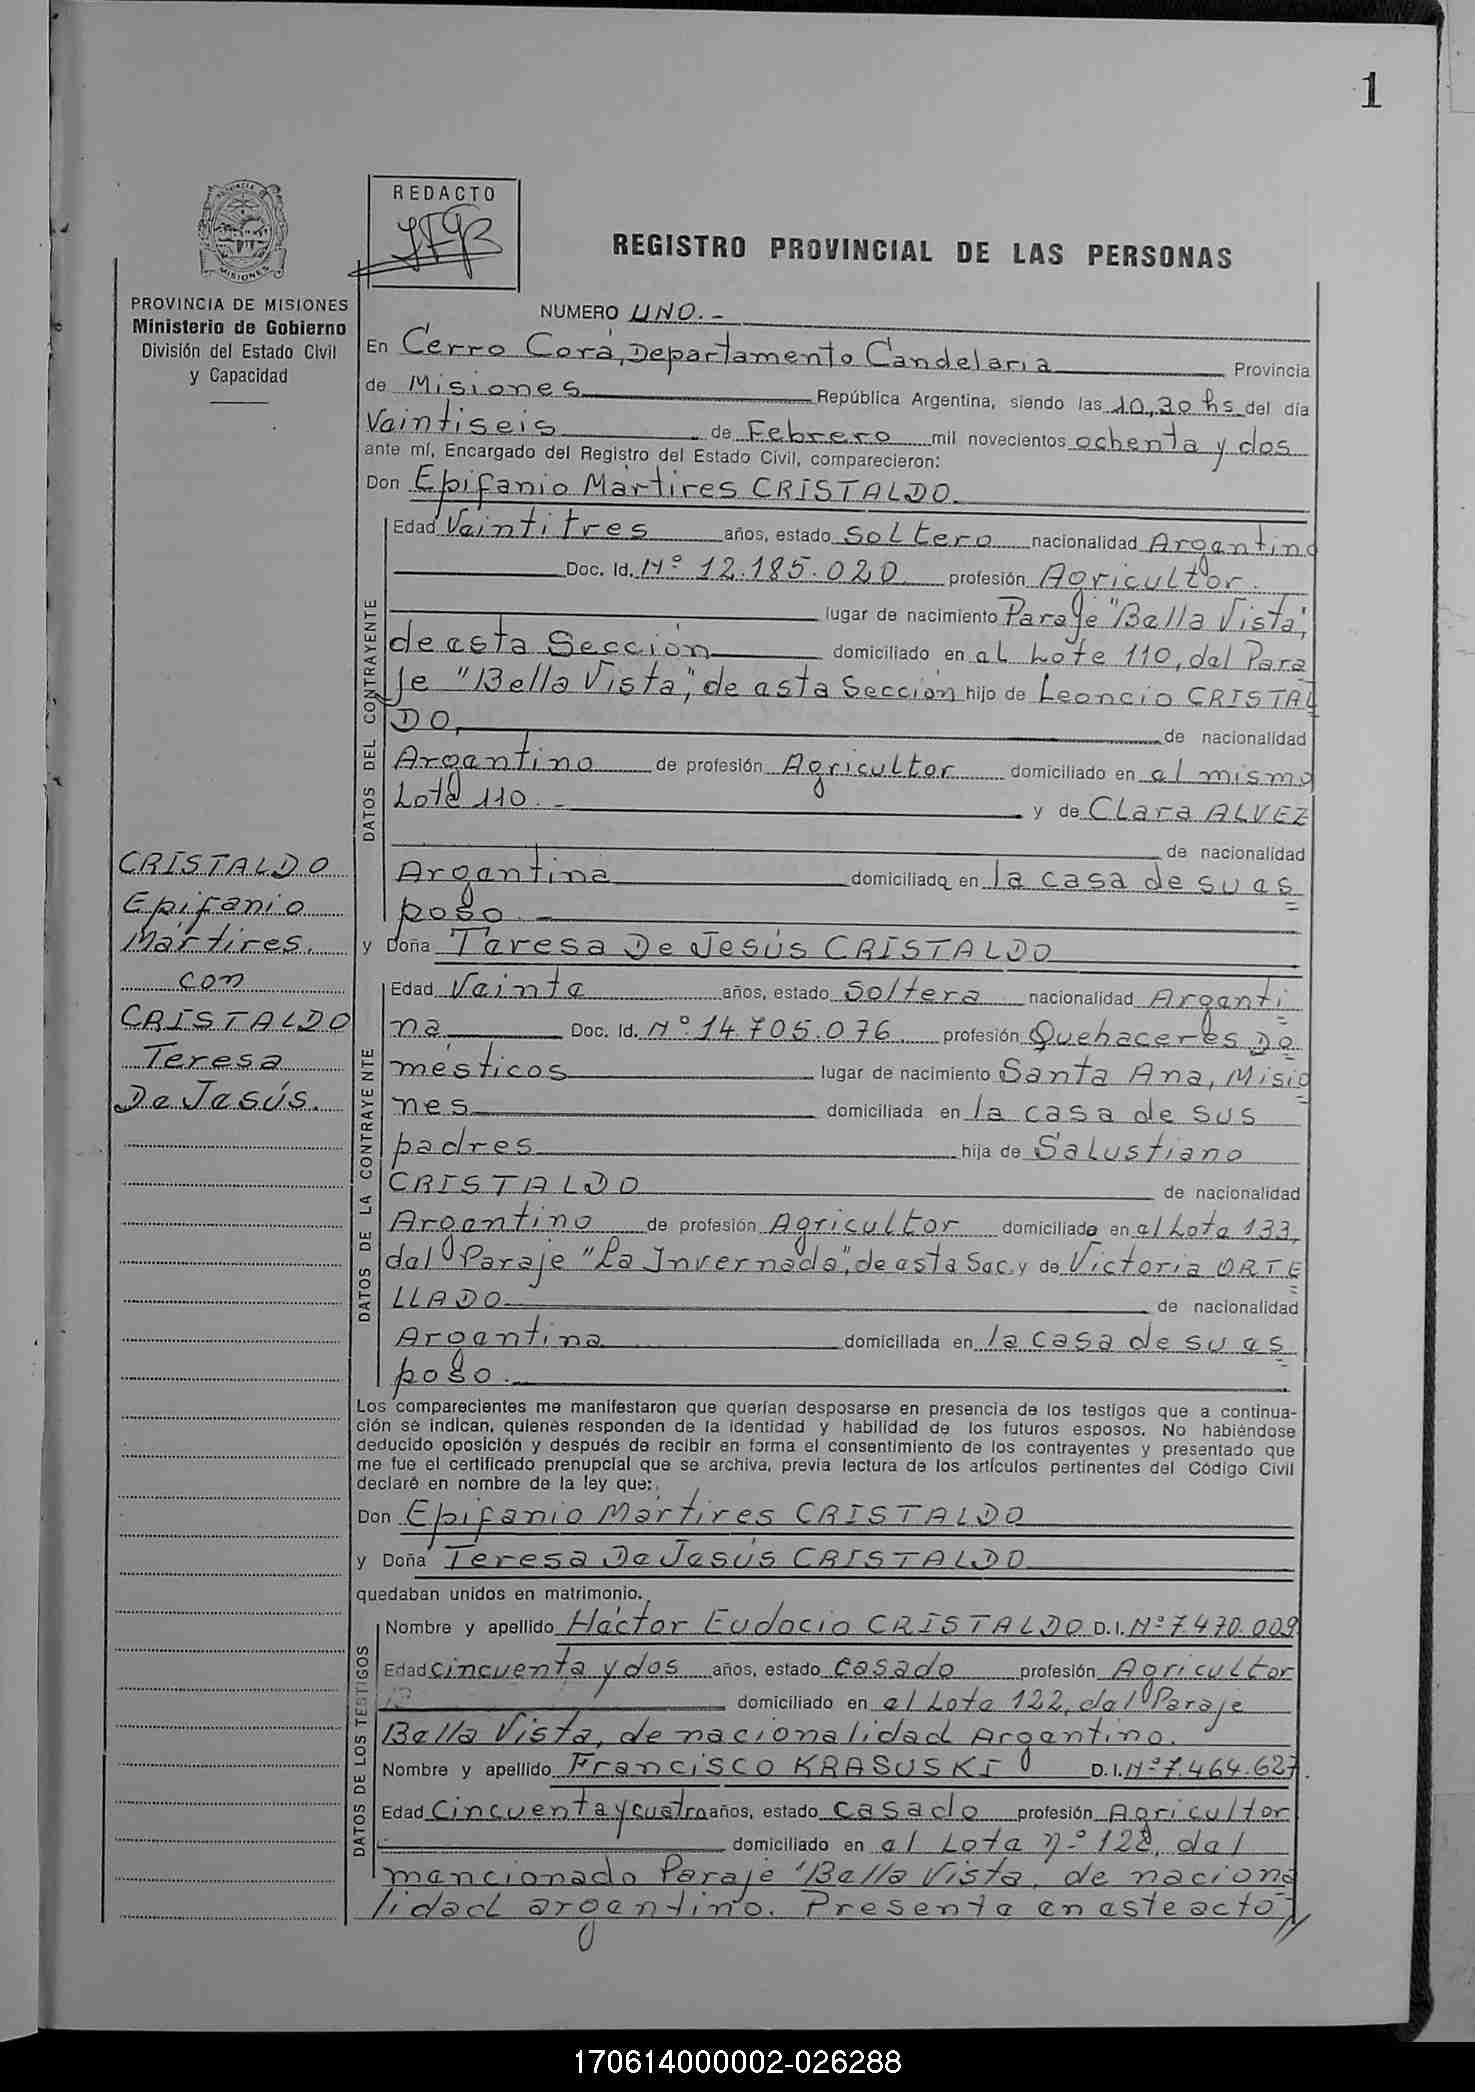 1
REDACTO
REGISTRO PROVINCIAL DE LAS PERSONAS
PROVINCIA DE MISIONES
Ministerio de Gobierno
División del Estado Civil
y Capacidad
NUMERO UNO.-
En Cerro Corá, Departamento Candelaria Provincia
de Misiones República Argentina, siendo las 10,30 hs del día
Veintiseis de Febrero mil novecientos ochenta y dos
ante mí, Encargado del Registro del Estado Civil, comparecieron:
Don Epifanio Mártires CRISTALDO.
DATOS DEL CONTRAYENTE
Edad Veintitres años, estado Soltero nacionalidad Argentino
Doc. Id. Nº 12.185.020 profesión Agricultor.
lugar de nacimiento Paraje "Bella Vista",
de esta Sección domiciliado en el Lote 110, del Para
je "Bella Vista", de esta Sección hijo de Leoncio CRISTAL
DO, de nacionalidad
Argentino de profesión Agricultor domiciliado en el mismo
Lote 110.- y de Clara ALVEZ
de nacionalidad
Argentina domiciliada en la casa de su es
poso.-
CRISTALDO
Epifanio
Mártires.
con
CRISTALDO
Teresa
De Jesús.
y Doña Teresa De Jesús CRISTALDO
DATOS DE LA CONTRAYENTE
Edad Veinte años, estado Soltera nacionalidad Argenti
na Doc. Id. Nº 14.705.076 profesión Quehaceres Do
mésticos lugar de nacimiento Santa Ana, Misio
nes domiciliada en la casa de sus
padres hija de Salustiano
CRISTALDO de nacionalidad
Argentino de profesión Agricultor domiciliado en el Lote 133,
del Paraje "La Invernada", de esta Sec. y de Victoria ORTE
LLADO de nacionalidad
Argentina domiciliada en la casa de su es
poso.-
Los comparecientes me manifestaron que querían desposarse en presencia de los testigos que a continua-
ción se indican, quienes responden de la identidad y habilidad de los futuros esposos. No habiéndose
deducido oposición y después de recibir en forma el consentimiento de los contrayentes y presentado que
me fue el certificado prenupcial que se archiva, previa lectura de los artículos pertinentes del Código Civil
declaré en nombre de la ley que:
Don Epifanio Mártires CRISTALDO
y Doña Teresa De Jesús CRISTALDO
quedaban unidos en matrimonio.
DATOS DE LOS TESTIGOS
Nombre y apellido Héctor Eudocio CRISTALDO D.I. Nº 7.470.009
Edad cincuenta y dos años, estado casado profesión Agricultor
domiciliado en el Lote 122, del Paraje
Bella Vista, de nacionalidad Argentino.
Nombre y apellido Francisco KRASUSKI D.I. Nº 7.464.627.
Edad Cincuenta y cuatro años, estado casado profesión Agricultor
domiciliado en el Lote nº 122, del
mencionado Paraje "Bella Vista, de naciona
lidad argentino. Presente en este acto
170614000002-026288